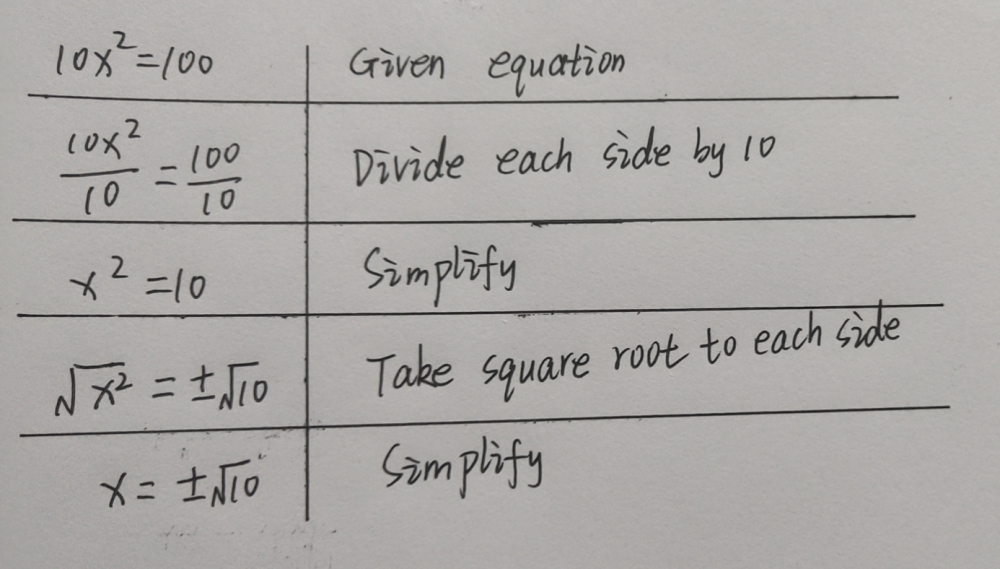 10x²=100 Given equation
10x²/10 = 100/10 Divide each side by 10
x²=10 Simplify
√x² = ±√10 Take square root to each side
x = ±√10 Simplify